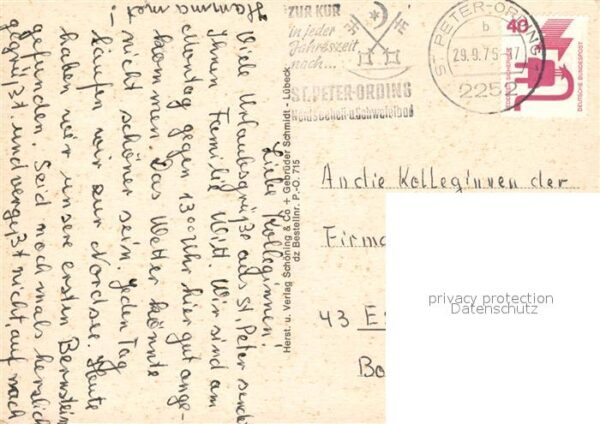 Liebe Kolleginnen!
Viele Urlaubsgrüße aus St. Peter sendet
Ihnen Familie Witt Wir sind am
Montag gegen 13 00 Uhr hier gut ange-
kommen. Das Wetter könnte
nicht schöner sein. Jeden Tag
laufen wir zur Nordsee. Heute
haben wir unsere ersten Bernstein
gefunden. Seid nochmals herzlich
gegrüßt und vergeßt nicht, auf nach
!
ZUR KUR
in jeder
Jahreszeit
nach...
ST. PETER-ORDING
Nordseeheil- u. Schwefelbad
ST. PETER-ORDING
b
29.9.75-17
2252
40
DEUTSCHE BUNDESPOST
Herst. u. Verlag Schöning & Co + Gebrüder Schmidt - Lübeck
dz Bestellnr. P.-O. 715
An die Kolleginnen der
Firma
43 E
Bo
privacy protection
Datenschutz